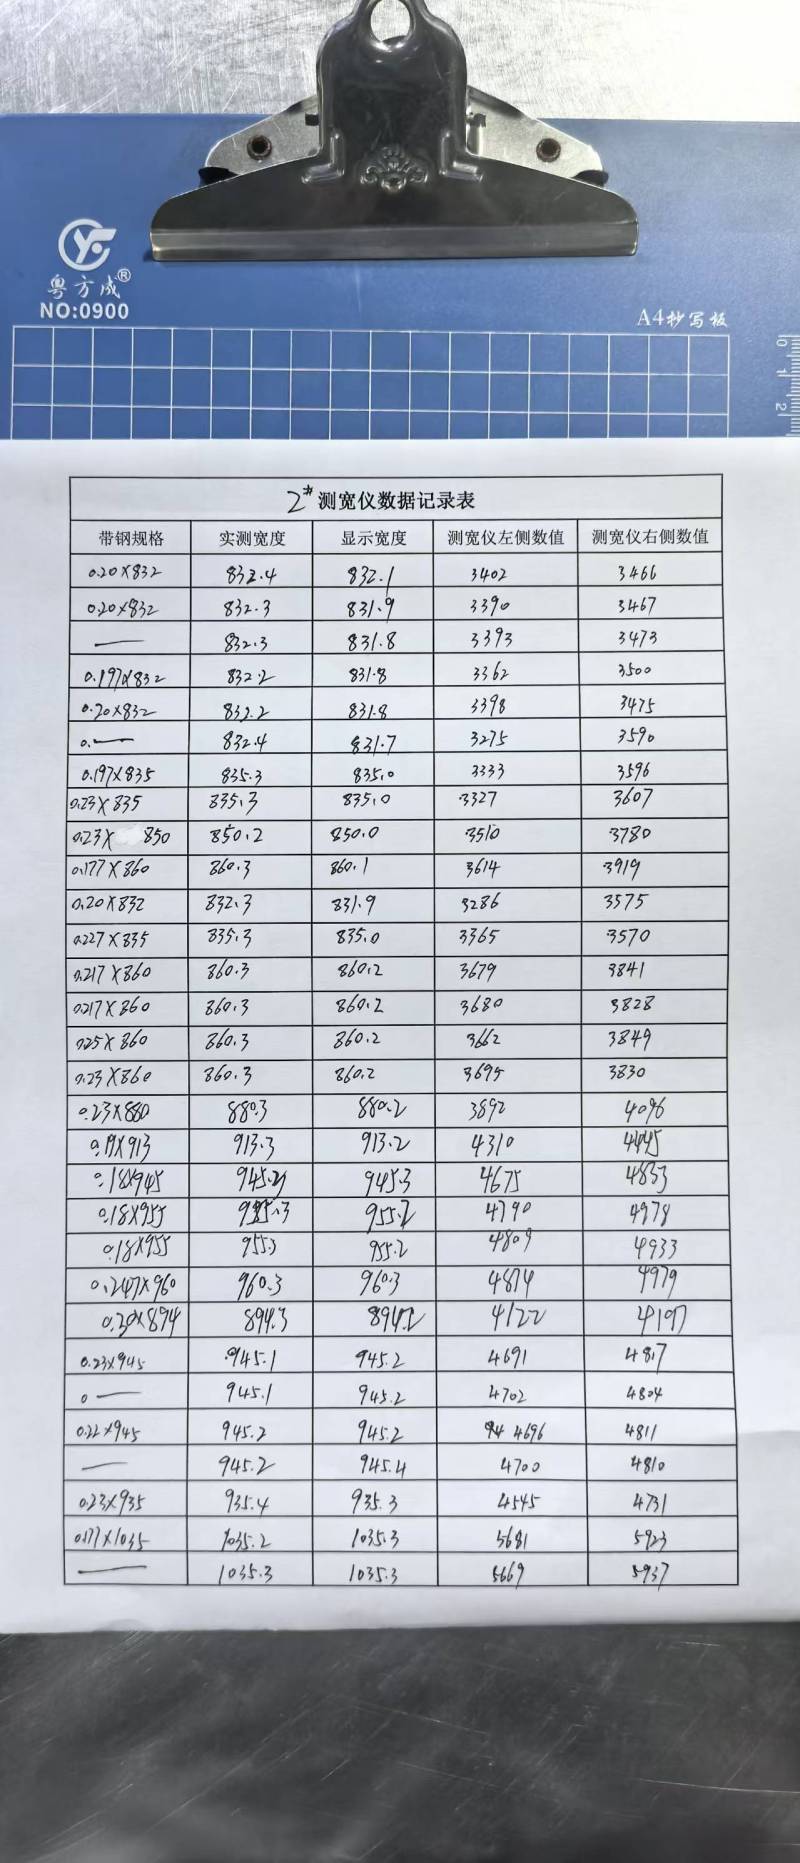 粤方成®
NO:0900
A4抄写板
0
1
2
2# 测宽仪数据记录表
带钢规格 实测宽度 显示宽度 测宽仪左侧数值 测宽仪右侧数值
0.20×832 832.4 832.1 3402 3466
0.20×832 832.3 831.9 3390 3467
— 832.3 831.8 3393 3473
0.197×832 832.2 831.8 3362 3500
0.20×832 832.2 831.8 3398 3475
0.— 832.4 831.7 3275 3590
0.197×835 835.3 835.0 3333 3596
0.23×835 835.3 835.0 3327 3607
0.23× 850 850.2 850.0 3510 3780
0.177×860 860.3 860.1 3614 3919
0.20×832 832.3 831.9 3286 3575
0.227×835 835.3 835.0 3365 3570
0.217×860 860.3 860.2 3679 3841
0.217×860 860.3 860.2 3680 3828
0.25×860 860.3 860.2 3662 3849
0.23×860 860.3 860.2 3695 3830
0.23×880 880.3 880.2 3892 4096
0.19×913 913.3 913.2 4310 4445
0.18×945 945.3 4675 4833
0.18×955 955.3 955.2 4790 4978
0.18×955 955.3 955.2 4809 4933
0.247×960 960.3 960.3 4874 4979
0.20×894 894.3 894.2 4122
0.23×945 945.1 945.2 4691 4817
0 — 945.1 945.2 4702 4804
0.22×945 945.2 945.2 4696 4811
— 945.2 945.4 4700 4810
0.23×935 935.4 935.3 4545 4731
0.177×1035 1035.2 1035.3 5681 5923
— 1035.3 1035.3 5669 5937